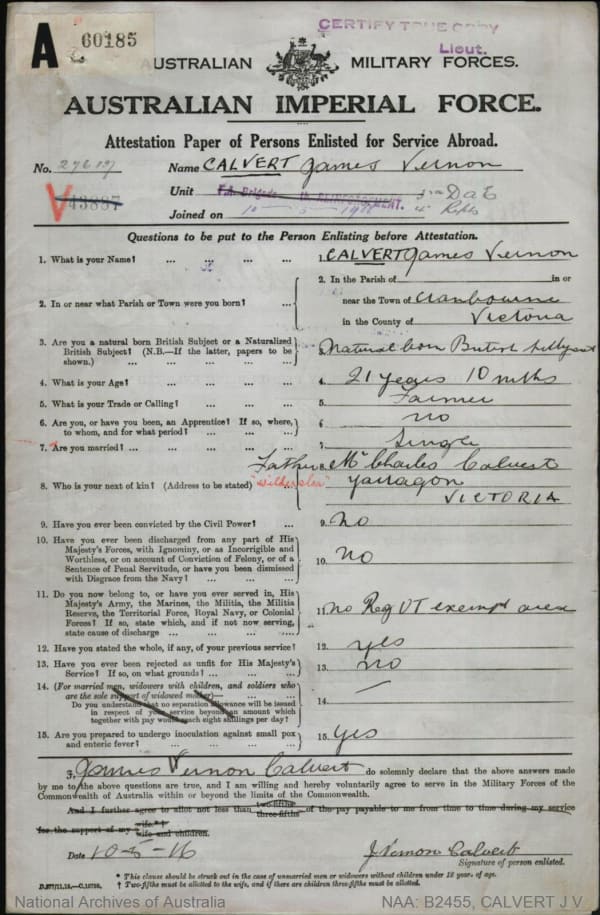 CERTIFY TRUE COPY
Lieut.
A 60185
AUSTRALIAN MILITARY FORCES.
AUSTRALIAN IMPERIAL FORCE.
Attestation Paper of Persons Enlisted for Service Abroad.
No. Name CALVERT James Vernon
V43887 Unit F.A. Brigade REINFORCEMENT.
Joined on 10 5
Questions to be put to the Person Enlisting before Attestation.
1. What is your Name? ... ... ... ... 1. CALVERT James Vernon
2. In or near what Parish or Town were you born? ... 2. In the Parish of in or
near the Town of Cranbourne
in the County of Victoria
3. Are you a natural born British Subject or a Naturalized 3. Natural born British
British Subject? (N.B.—If the latter, papers to be
shown.) ... ... ... ...
4. What is your Age? ... ... ... ... 4. 21 years 10 mths
5. What is your Trade or Calling? ... ... ... 5. Farmer
6. Are you, or have you been, an Apprentice? If so, where, 6. no
to whom, and for what period? ... ... ...
7. Are you married? ... ... ... ... ... 7. Single
8. Who is your next of kin? (Address to be stated) ... 8. Father Mr Charles Calvert
Yarragon
VICTORIA
9. Have you ever been convicted by the Civil Power? ... 9. No
10. Have you ever been discharged from any part of His 10. No
Majesty's Forces, with Ignominy, or as Incorrigible and
Worthless, or on account of Conviction of Felony, or of a
Sentence of Penal Servitude, or have you been dismissed
with Disgrace from the Navy? ... ... ...
11. Do you now belong to, or have you ever served in, His 11. no Reg UT exempt area
Majesty's Army, the Marines, the Militia, the Militia
Reserve, the Territorial Force, Royal Navy, or Colonial
Forces? If so, state which, and if not now serving,
state cause of discharge ... ... ... ...
12. Have you stated the whole, if any, of your previous service? 12. yes
13. Have you ever been rejected as unfit for His Majesty's 13. no
Service? If so, on what grounds? ... ... ...
14. (For married men, widowers with children, and soldiers who 14. —
are the sole support of widowed mother)—
Do you understand that no separation allowance will be issued
in respect of your service beyond an amount which
together with pay would reach eight shillings per day?
15. Are you prepared to undergo inoculation against small pox 15. Yes
and enteric fever? ... ... ... ...
I, James Vernon Calvert do solemnly declare that the above answers made
by me to the above questions are true, and I am willing and hereby voluntarily agree to serve in the Military Forces of the
Commonwealth of Australia within or beyond the limits of the Commonwealth.
And I further agree to allot not less than two-fifths three-fifths of the pay payable to me from time to time during my service
for the support of my wife*† wife and children.
Date 10-5-16 J Vernon Calvert
Signature of person enlisted.
* This clause should be struck out in the case of unmarried men or widowers without children under 18 years of age.
† Two-fifths must be allotted to the wife, and if there are children three-fifths must be allotted.
National Archives of Australia NAA: B2455, CALVERT J V